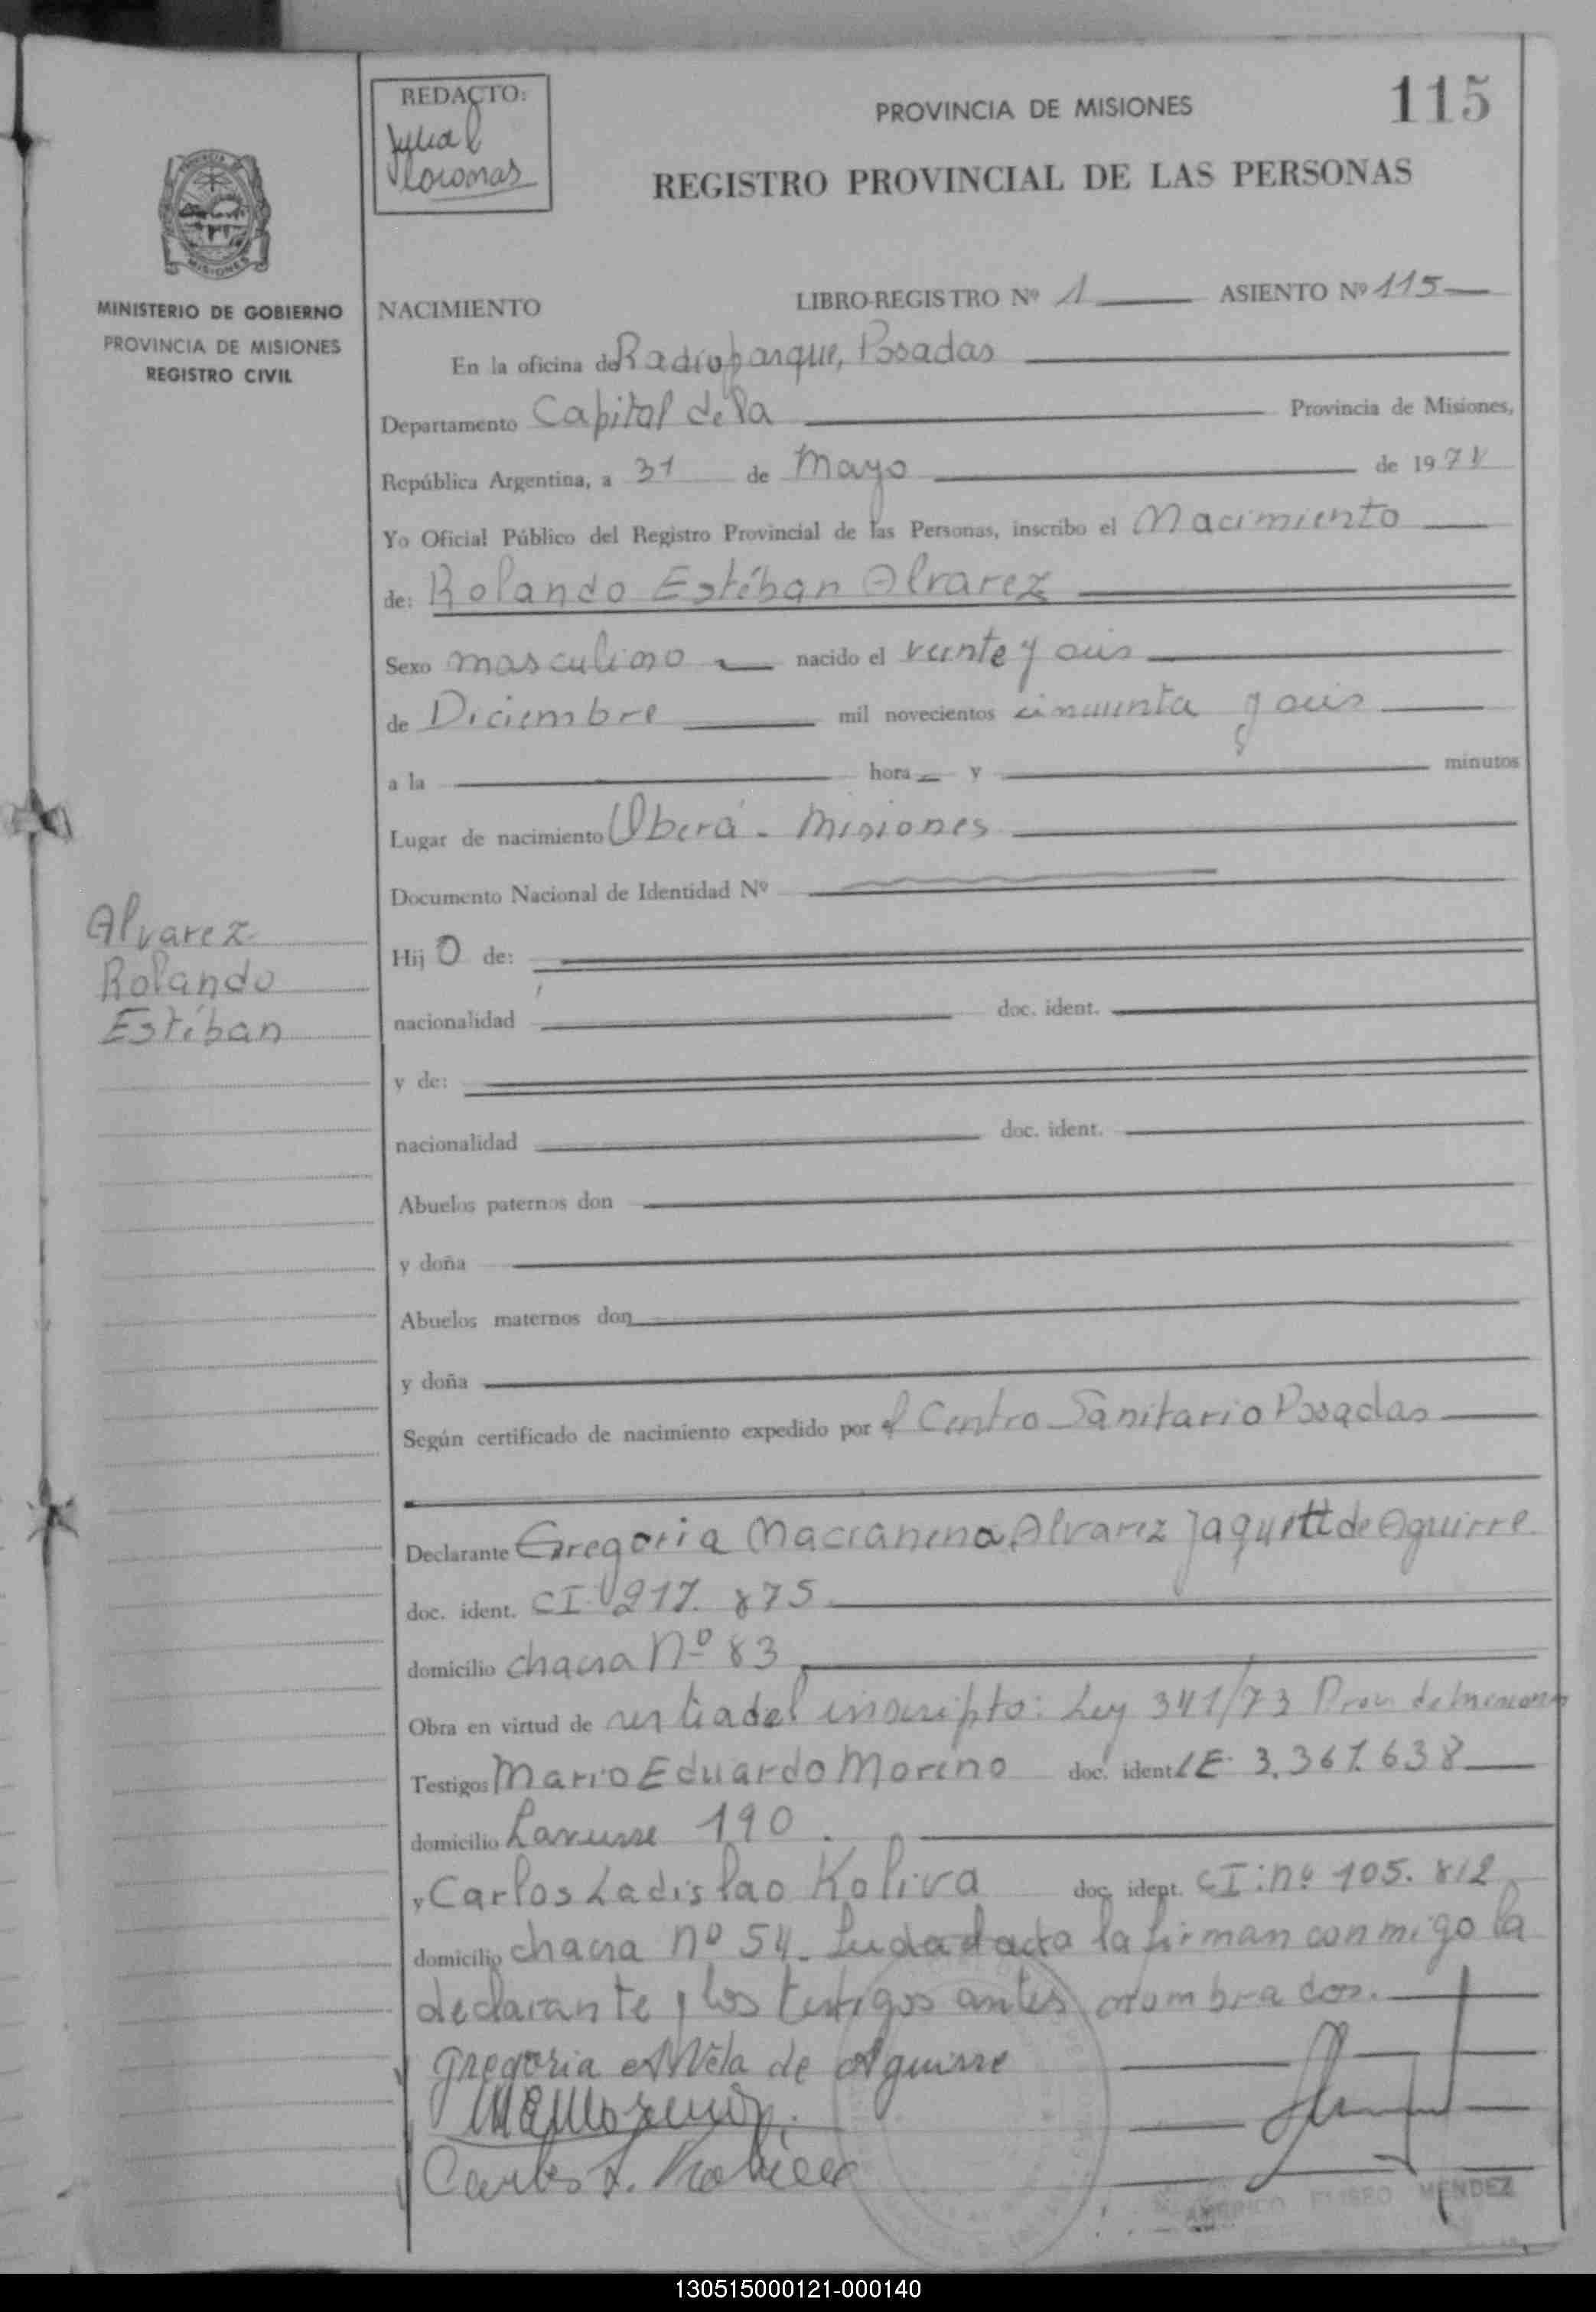 REDACTO:
115
PROVINCIA DE MISIONES
REGISTRO PROVINCIAL DE LAS PERSONAS
MISIONES
MINISTERIO DE GOBIERNO
PROVINCIA DE MISIONES
REGISTRO CIVIL
NACIMIENTO LIBRO-REGISTRO Nº 1 ASIENTO Nº 115
En la oficina de Radioparque, Posadas
Departamento Capital de la Provincia de Misiones,
República Argentina, a 31 de Mayo de 197
Yo Oficial Público del Registro Provincial de las Personas, inscribo el Nacimiento
de: Rolando Estéban Alvarez
Sexo masculino nacido el veinte y seis
de Diciembre mil novecientos cincuenta y seis
a la hora y minutos
Lugar de nacimiento Oberá - Misiones
Documento Nacional de Identidad Nº
Alvarez
Rolando
Estéban
Hij o de:
nacionalidad doc. ident.
y de:
nacionalidad doc. ident.
Abuelos paternos don
y doña
Abuelos maternos don
y doña
Según certificado de nacimiento expedido por el Centro Sanitario Posadas
Declarante Gregoria Alvarez de Aguirre
doc. ident. CI 217.875
domicilio chacra Nº 83
Obra en virtud de ser tia del inscripto: Ley 341/73 Prov. de Misiones
Testigos Mario Eduardo Moreno doc. ident LE 3.361.638
domicilio 190
y Carlos Ladislao Koliva doc. ident. CI: nº 105.812
domicilio chacra nº 54. Leida el acta la firman conmigo la
declarante y los testigos antes nombrados.
Gregoria de Aguirre
Carlos L.
AMERICO ELISEO MENDEZ
130515000121-000140